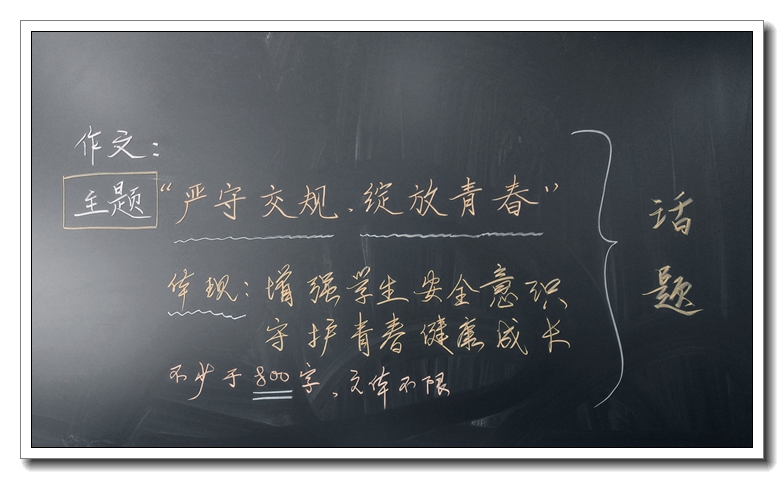 作文：
主题“严守交规、绽放青春”
体现：增强学生安全意识
守护青春健康成长
不少于800字，文体不限
话题